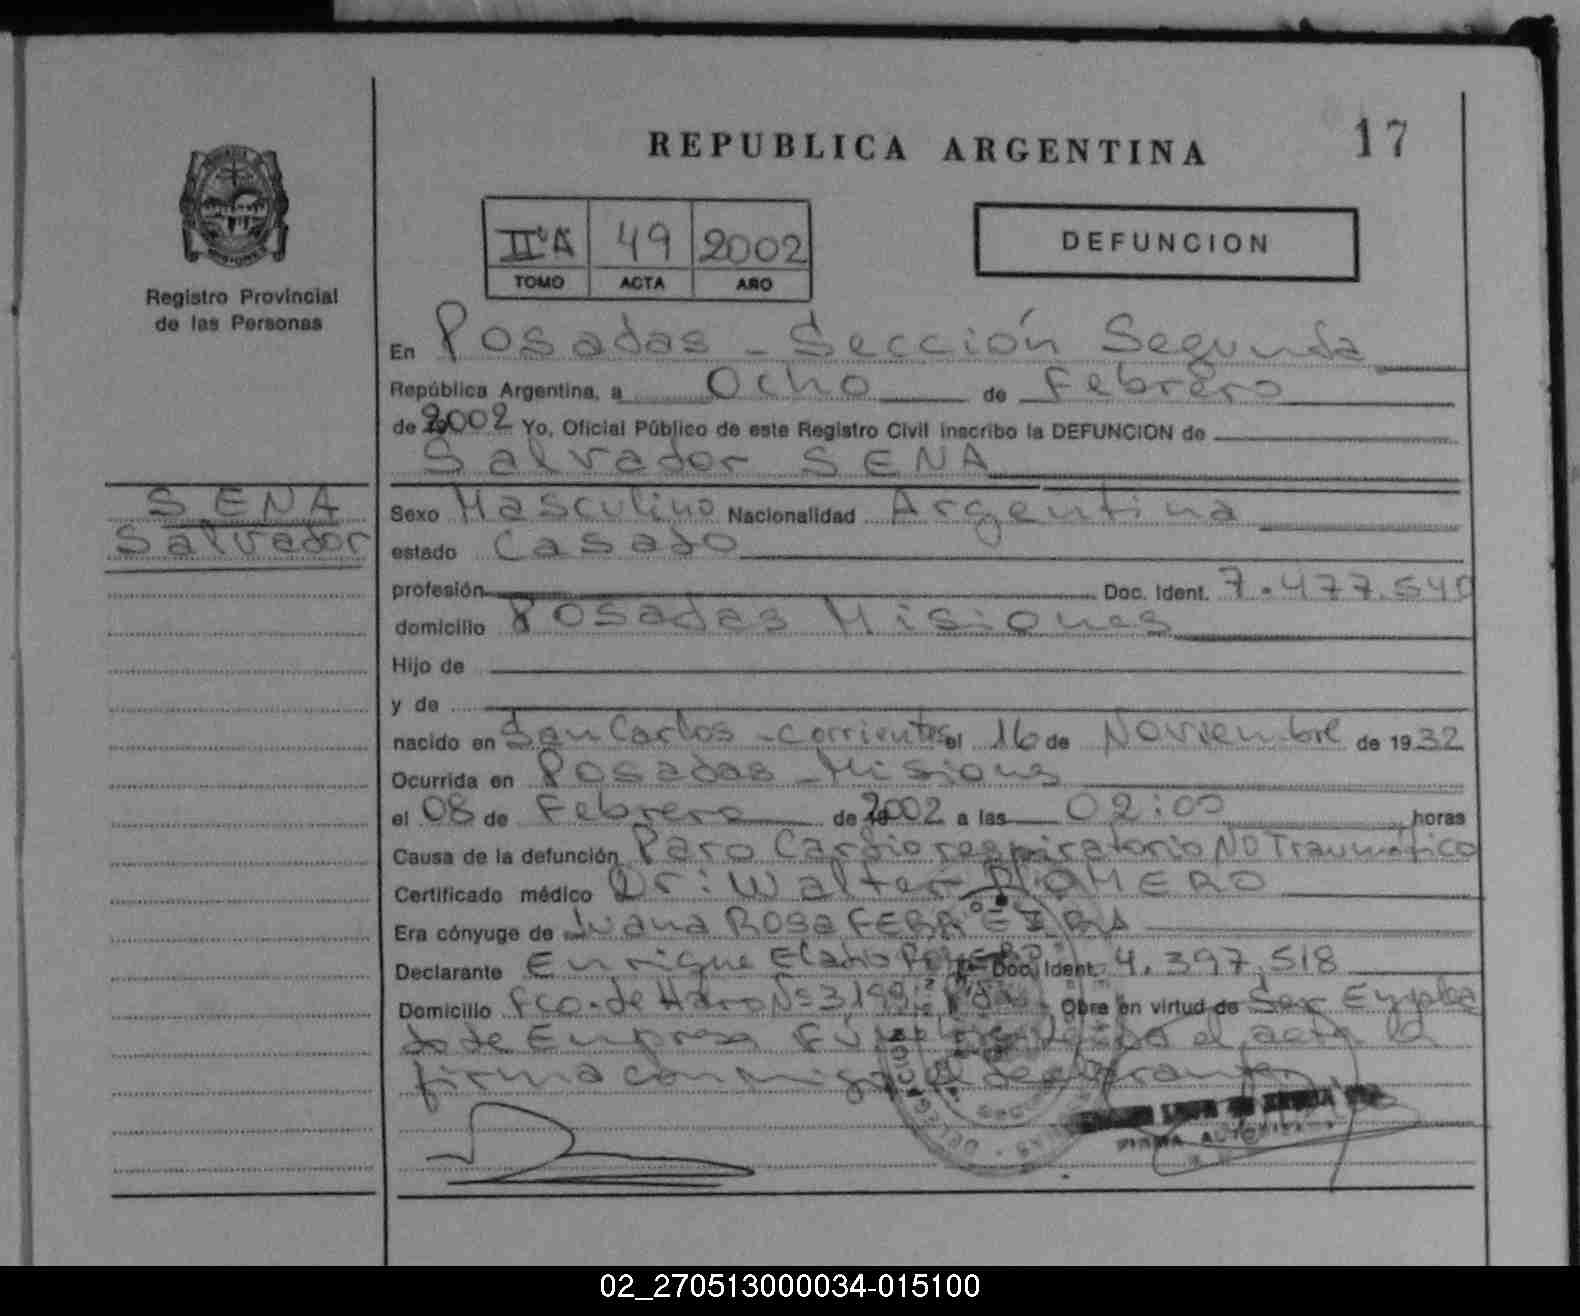 REPUBLICA ARGENTINA
17
Registro Provincial
de las Personas
IIºA 49 2002
TOMO ACTA AÑO
DEFUNCION
En Posadas - Sección Segunda
República Argentina, a Ocho de Febrero
de 2002 Yo, Oficial Público de este Registro Civil inscribo la DEFUNCION de
Salvador SENA
SENA
Salvador
Sexo Masculino Nacionalidad Argentina
estado Casado
profesión Doc. Ident. 7.477.540
domicilio Posadas Misiones
Hijo de
y de
nacido en San Carlos - Corrientes el 16 de Noviembre de 1932
Ocurrida en Posadas - Misiones
el 08 de Febrero de 2002 a las 02:00 horas
Causa de la defunción Paro Cardiorespiratorio NO Traumático
Certificado médico Dr: Walter
Era cónyuge de Juana Rosa
Declarante Enrique Doc. Ident. 4.397.518
Domicilio Fco. de Haro Nº 3199 Obra en virtud de Ser Emplea
do de Empresa el acta la
firma conmigo el declarante
FIRMA AUTORIZADA
02_270513000034-015100